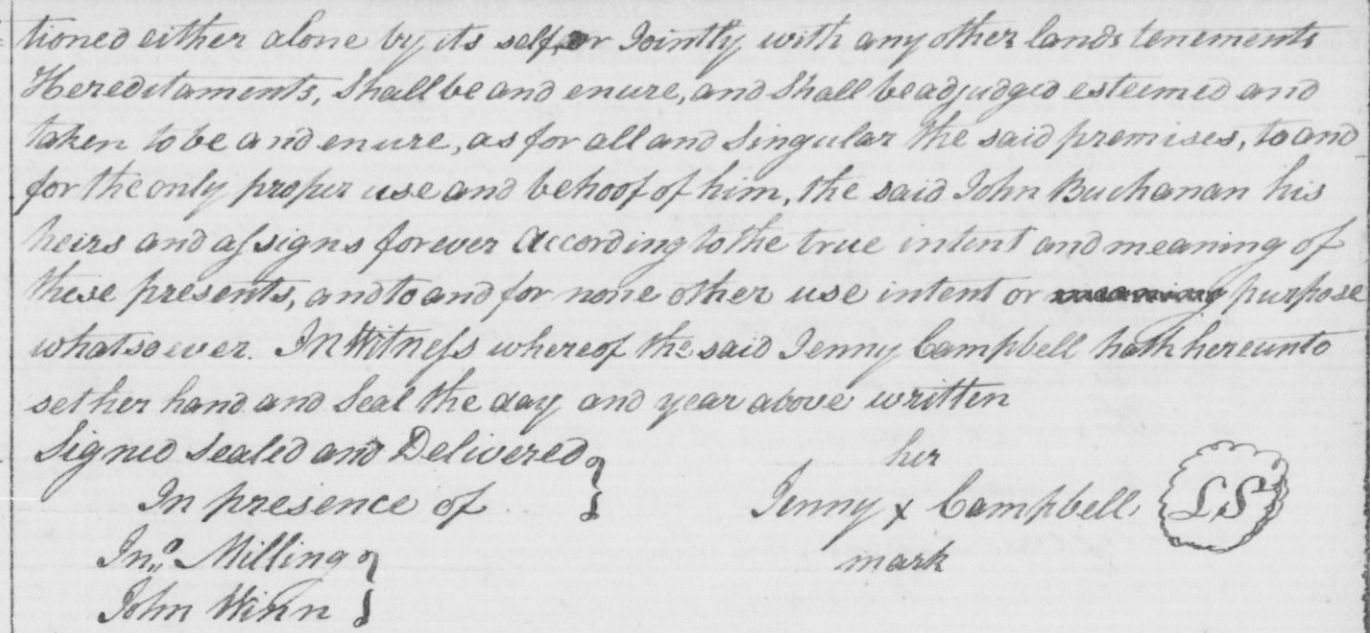 tioned either alone by its self, or Jointly with any other lands tenements
Hereditaments, Shall be and enure, and Shall be adjudged esteemed and
taken to be and enure, as for all and Singular the said premises, to and
for the only proper use and behoof of him, the said John Buchanan his
heirs and assigns forever According to the true intent and meaning of
these presents, and to and for none other use intent or meaning purpose
whatsoever. In Witness whereof the said Jenny Campbell hath hereunto
set her hand and Seal the day and year above written
Signed Sealed and Delivered }
In presence of
her
Jenny x Campbell LS
mark
Jno. Milling }
John Winn